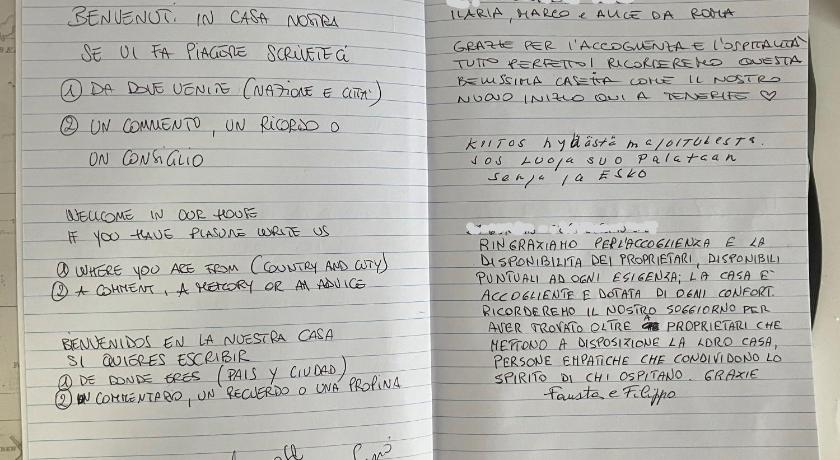 BENVENUTI IN CASA NOSTRA
SE VI FA PIACERE SCRIVETECI
① DA DOVE VENITE (NAZIONE E CITTA')
② UN COMMENTO, UN RICORDO O
UN CONSIGLIO
WELLCOME IN OUR HOUSE
IF YOU HAVE PLASURE WRITE US
① WHERE YOU ARE FROM (COUNTRY AND CITY)
② A COMMENT, A MEMORY OR AN ADVICE
BENVENIDOS EN LA NUESTRA CASA
SI QUIERES ESCRIBIR
① DE DONDE ERES (PAIS Y CIUDAD)
② UN COMMENTARIO, UN RECUERDO O UNA PROPINA
ILARIA, MARCO e ALICE DA ROMA
GRAZIE PER L'ACCOGLIENZA E L'OSPITALITA'
TUTTO PERFETTO! RICORDEREMO QUESTA
BELLISSIMA CASETTA COME IL NOSTRO
NUOVO INIZIO QUI A TENERIFE ♡
KIITOS hyvästä majoituksesta.
JOS LUOJA SUO Palataan
Senja ja ESKO
RINGRAZIAMO PER L'ACCOGLIENZA E LA
DISPONIBILITA DEI PROPRIETARI, DISPONIBILI
PUNTUALI AD OGNI ESIGENZA; LA CASA E'
ACCOGLIENTE E DOTATA DI OGNI CONFORT.
RICORDEREMO IL NOSTRO SOGGIORNO PER
AVER TROVATO OLTRE A PROPRIETARI CHE
METTONO A DISPOSIZIONE LA LORO CASA,
PERSONE EMPATICHE CHE CONDIVIDONO LO
SPIRITO DI CHI OSPITANO. GRAZIE
Fausta e Filippo